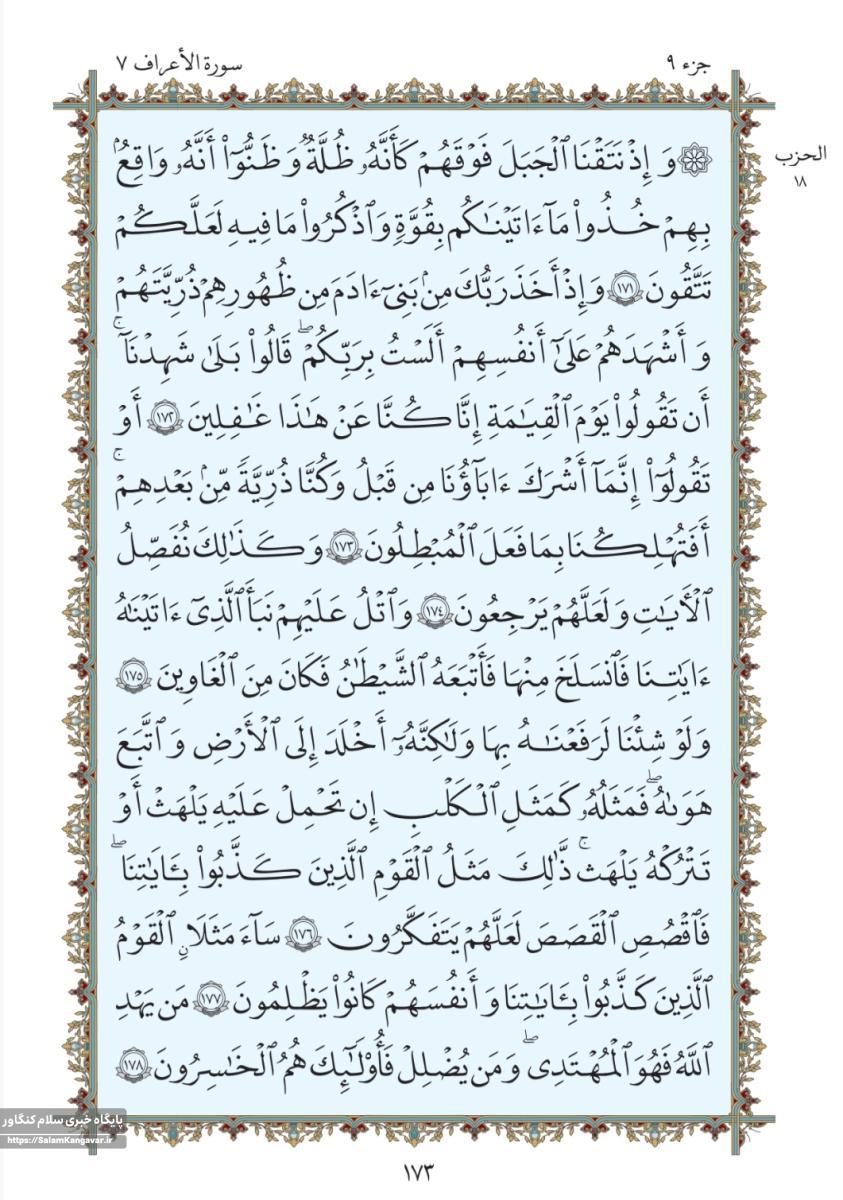 سورة الأعراف ٧
جزء ٩
الحزب
١٨
۞ وَإِذْ نَتَقْنَا ٱلْجَبَلَ فَوْقَهُمْ كَأَنَّهُۥ ظُلَّةٌ وَظَنُّوٓا۟ أَنَّهُۥ وَاقِعٌۢ
بِهِمْ خُذُوا۟ مَآ ءَاتَيْنَـٰكُم بِقُوَّةٍ وَٱذْكُرُوا۟ مَا فِيهِ لَعَلَّكُمْ
تَتَّقُونَ ١٧١ وَإِذْ أَخَذَ رَبُّكَ مِنۢ بَنِىٓ ءَادَمَ مِن ظُهُورِهِمْ ذُرِّيَّتَهُمْ
وَأَشْهَدَهُمْ عَلَىٰٓ أَنفُسِهِمْ أَلَسْتُ بِرَبِّكُمْ ۖ قَالُوا۟ بَلَىٰ شَهِدْنَآ ۚ
أَن تَقُولُوا۟ يَوْمَ ٱلْقِيَـٰمَةِ إِنَّا كُنَّا عَنْ هَـٰذَا غَـٰفِلِينَ ١٧٢ أَوْ
تَقُولُوٓا۟ إِنَّمَآ أَشْرَكَ ءَابَآؤُنَا مِن قَبْلُ وَكُنَّا ذُرِّيَّةً مِّنۢ بَعْدِهِمْ ۚ
أَفَتُهْلِكُنَا بِمَا فَعَلَ ٱلْمُبْطِلُونَ ١٧٣ وَكَذَٰلِكَ نُفَصِّلُ
ٱلْـَٔايَـٰتِ وَلَعَلَّهُمْ يَرْجِعُونَ ١٧٤ وَٱتْلُ عَلَيْهِمْ نَبَأَ ٱلَّذِىٓ ءَاتَيْنَـٰهُ
ءَايَـٰتِنَا فَٱنسَلَخَ مِنْهَا فَأَتْبَعَهُ ٱلشَّيْطَـٰنُ فَكَانَ مِنَ ٱلْغَاوِينَ ١٧٥
وَلَوْ شِئْنَا لَرَفَعْنَـٰهُ بِهَا وَلَـٰكِنَّهُۥٓ أَخْلَدَ إِلَى ٱلْأَرْضِ وَٱتَّبَعَ
هَوَىٰهُ ۖ فَمَثَلُهُۥ كَمَثَلِ ٱلْكَلْبِ إِن تَحْمِلْ عَلَيْهِ يَلْهَثْ أَوْ
تَتْرُكْهُ يَلْهَث ۚ ذَّٰلِكَ مَثَلُ ٱلْقَوْمِ ٱلَّذِينَ كَذَّبُوا۟ بِـَٔايَـٰتِنَا ۖ
فَٱقْصُصِ ٱلْقَصَصَ لَعَلَّهُمْ يَتَفَكَّرُونَ ١٧٦ سَآءَ مَثَلًا ٱلْقَوْمُ
ٱلَّذِينَ كَذَّبُوا۟ بِـَٔايَـٰتِنَا وَأَنفُسَهُمْ كَانُوا۟ يَظْلِمُونَ ١٧٧ مَن يَهْدِ
ٱللَّهُ فَهُوَ ٱلْمُهْتَدِى ۖ وَمَن يُضْلِلْ فَأُو۟لَـٰٓئِكَ هُمُ ٱلْخَـٰسِرُونَ ١٧٨
پایگاه خبری سلام کنگاور
https://SalamKangavar.ir
١٧٣